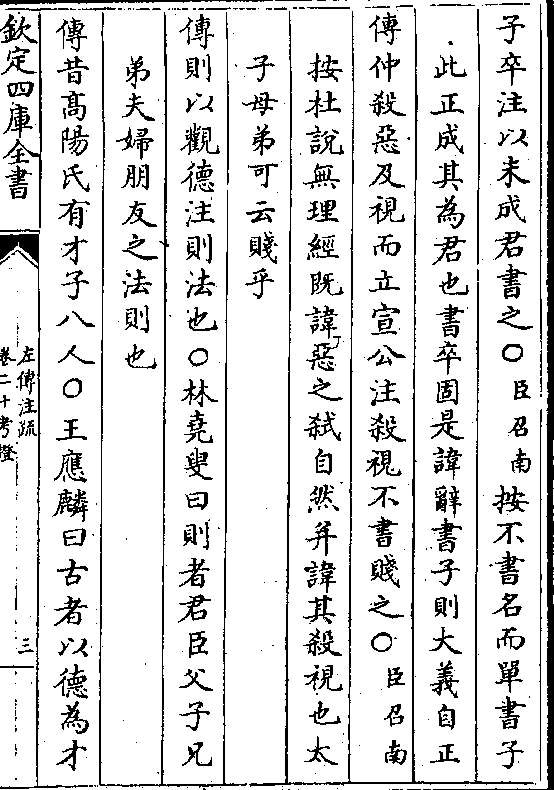 子卒注以未成君書之〇臣召南按不書名而單書子
此正成其為君也書卒固是諱辭書子則大義自正
傳仲殺惡及視而立宣公注殺視不書賤之〇臣召南
按杜說無理經既諱惡之弑自然并諱其殺視也太
子母弟可云賤乎
傳則以觀德注則法也〇林堯叟曰則者君臣父子兄
弟夫婦朋友之法則也
傳昔髙陽氏有才子八人〇王應麟曰古者以德為才
欽定四庫全書
左傳注疏
卷二十考證
三